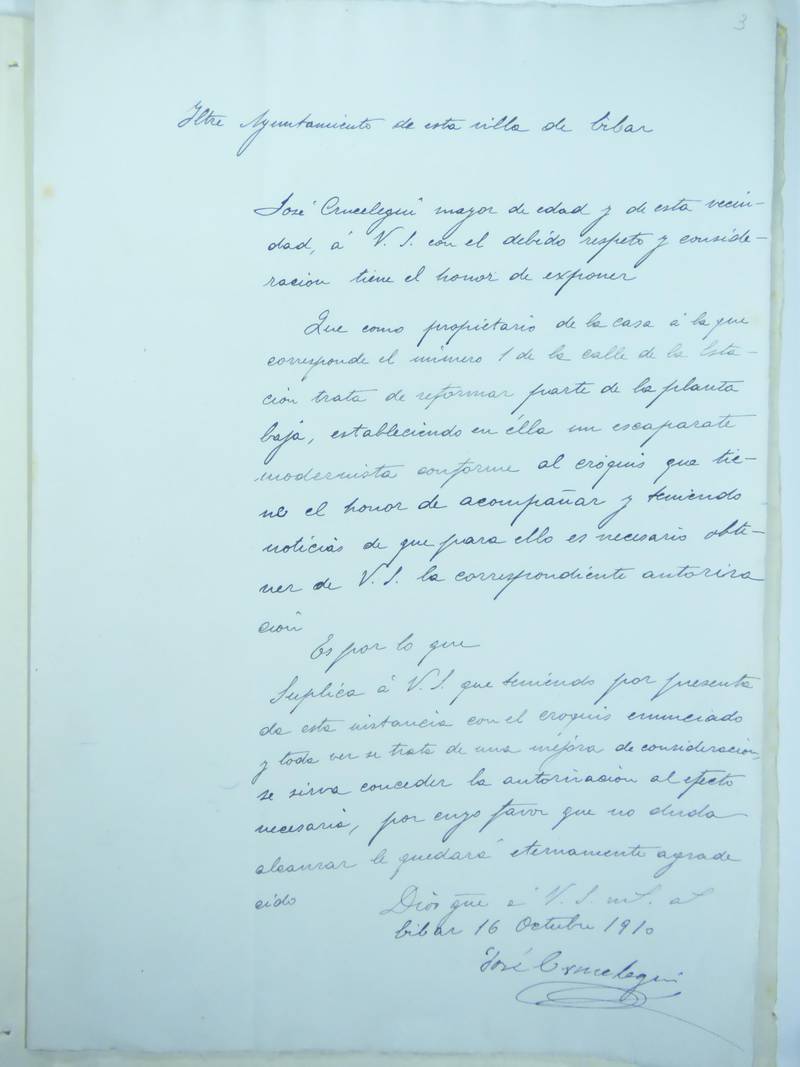 3
Iltre Ayuntamiento de esta villa de Eibar
José Crucelegui mayor de edad y de esta vecin-
dad, á V. S. con el debido respeto y conside-
ración tiene el honor de exponer
Que como propietario de la casa á la que
corresponde el número 1 de la calle de la Esta-
ción trata de reformar parte de la planta
baja, estableciendo en élla un escaparate
modernista conforme al cróquis que tie-
ne el honor de acompañar y teniendo
noticias de que para ello es necesario obte-
ner de V. S. la correspondiente autoriza
ción
Es por lo que
Suplica á V. S. que teniendo por presenta
da esta instancia con el croquis enunciado
y toda vez se trata de una mejora de consideración,
se sirva conceder la autorización al efecto
necesaria, por cuyo favor que no duda
alcanzar le quedará eternamente agrade
cido
Dios gue á V. S. m.s. a.s
Eibar 16 Octubre 1910
José Crucelegui